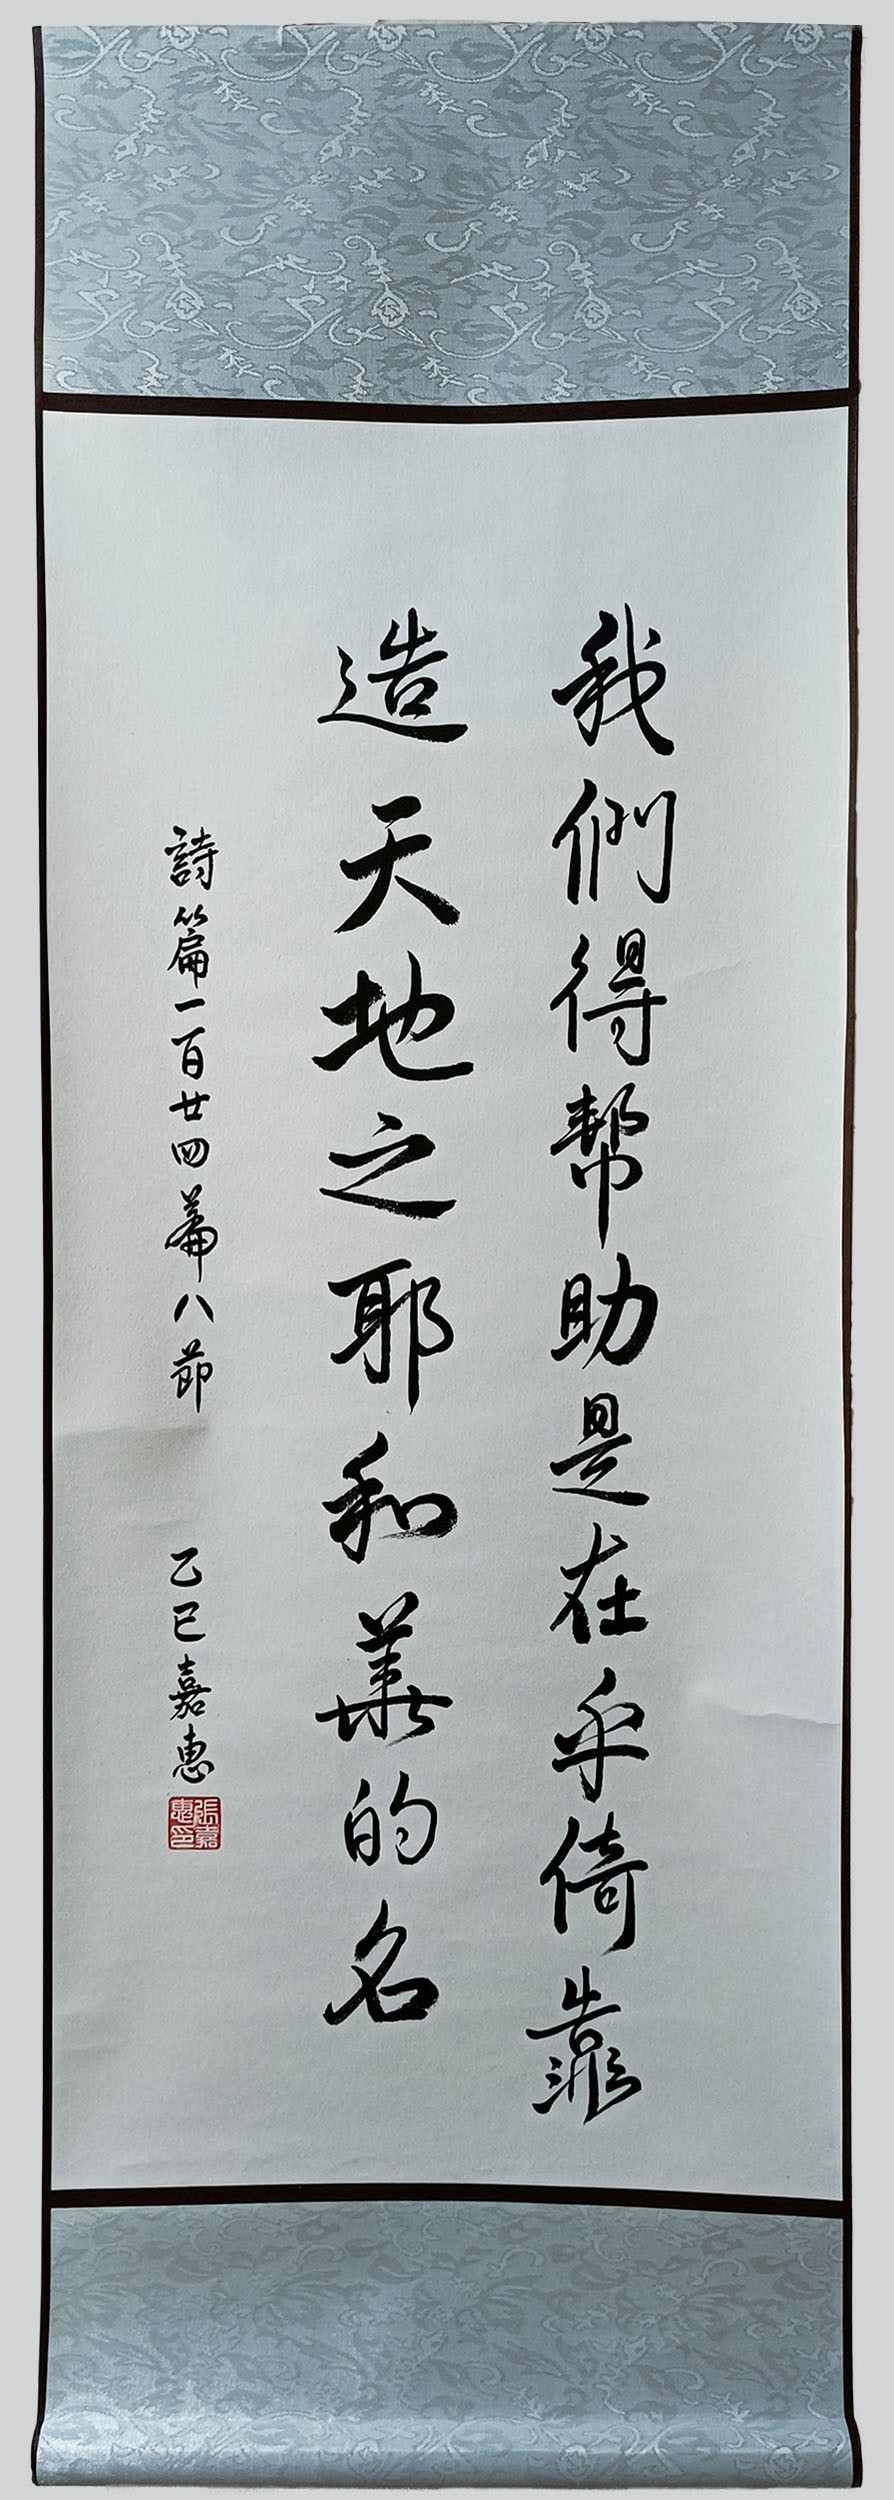 我們得幫助是在乎倚靠
造天地之耶和華的名
詩篇一百廿四篇八節
乙巳嘉惠
張嘉惠印